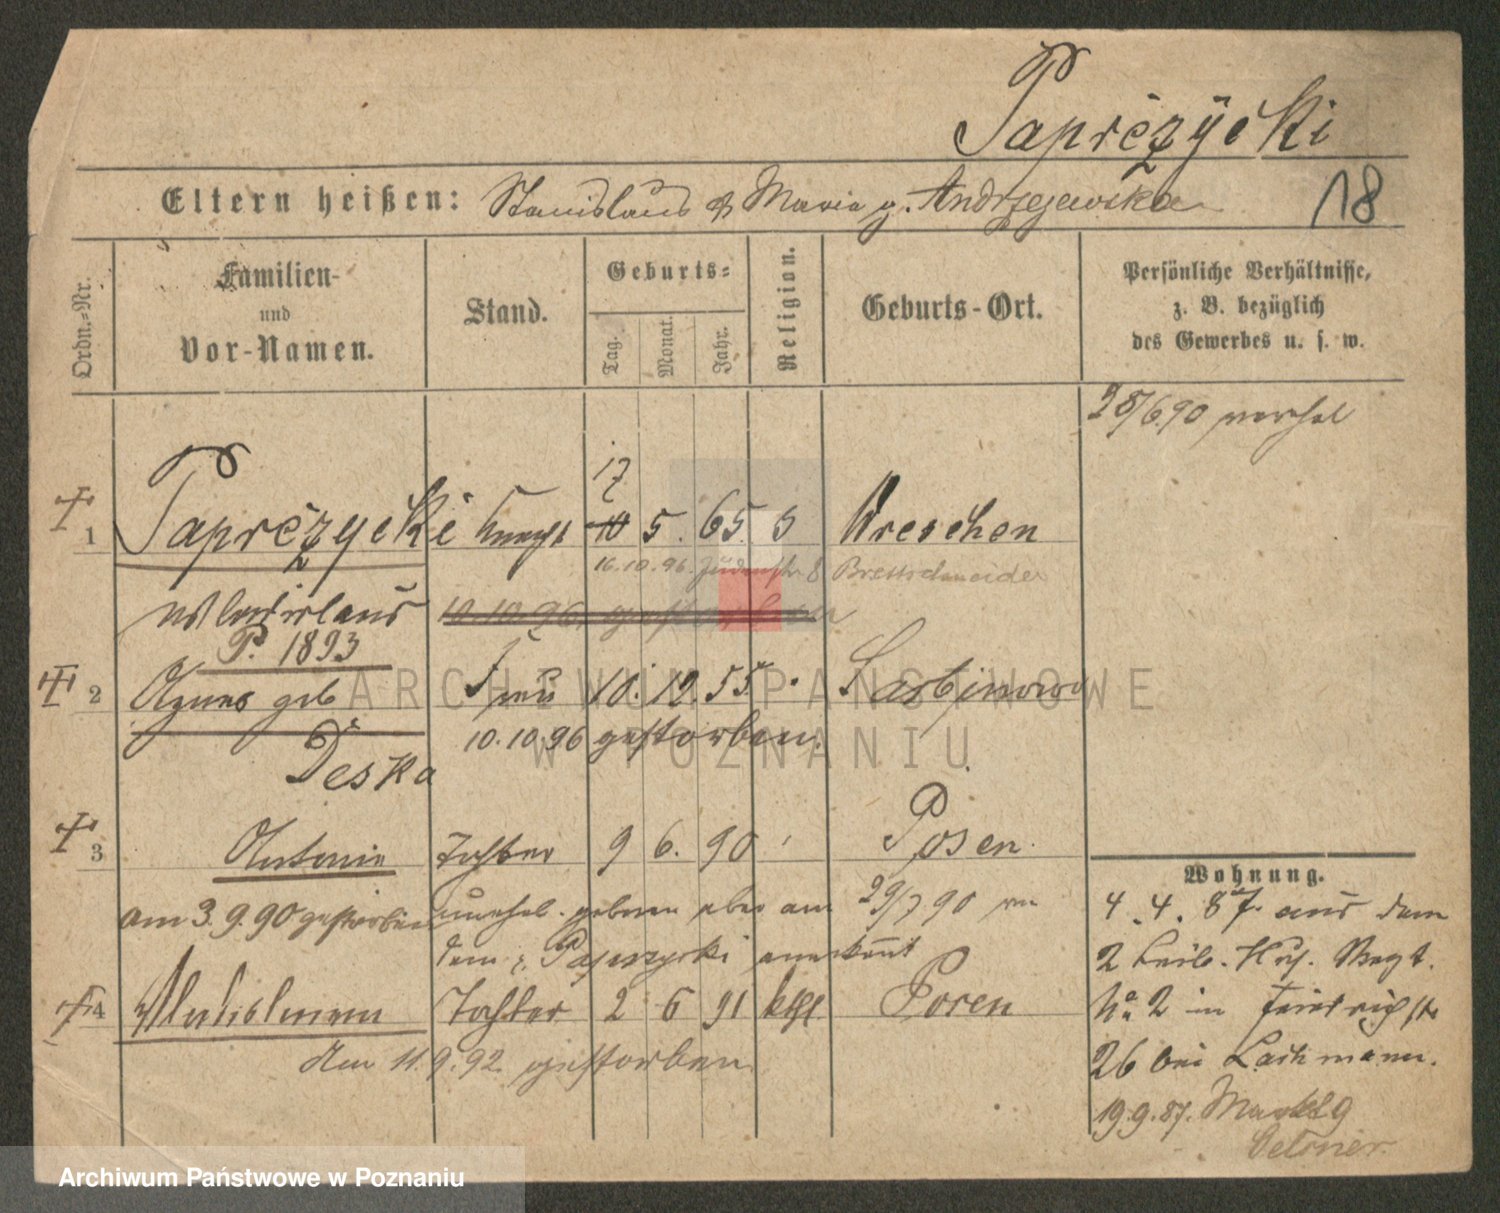 Paprčzÿcki
Eltern heißen: Stanislaus & Maria g. Andrzejewska
18
Ordn.-Nr.
Familien- und Vor-Namen.
Stand.
Geburts-
Tag. Monat. Jahr.
Religion.
Geburts-Ort.
Persönliche Verhältnisse, z. B. bezüglich des Gewerbes u. s. w.
28/6.90 verehel
17
1 Paprčzycki Knecht 10 5. 65. Wreschen
16.10.96. Judenstr 8 Brettschneider
Wladislaus 10.10.96 gestorben
P. 1893
2 Agnes geb Frau 10. 12. 55. Sarbinowo
10.10.96 gestorben.
Deska
3 Antonie Tochter 9 6. 90 Posen.
am 3.9.90 gestorben unehel. geboren aber am 29/7 90 von
dem anerkannt
4 Tochter 2 6 91 kth Posen
Am 11.9.92. gestorben
Wohnung.
4. 4. 87. aus dem
2 Leib. Hus. Regt.
No 2 in
26 bei Lachmann.
19.9.87. Markt 9
ARCHIWUM PAŃSTWOWE
W POZNANIU
Archiwum Państwowe w Poznaniu